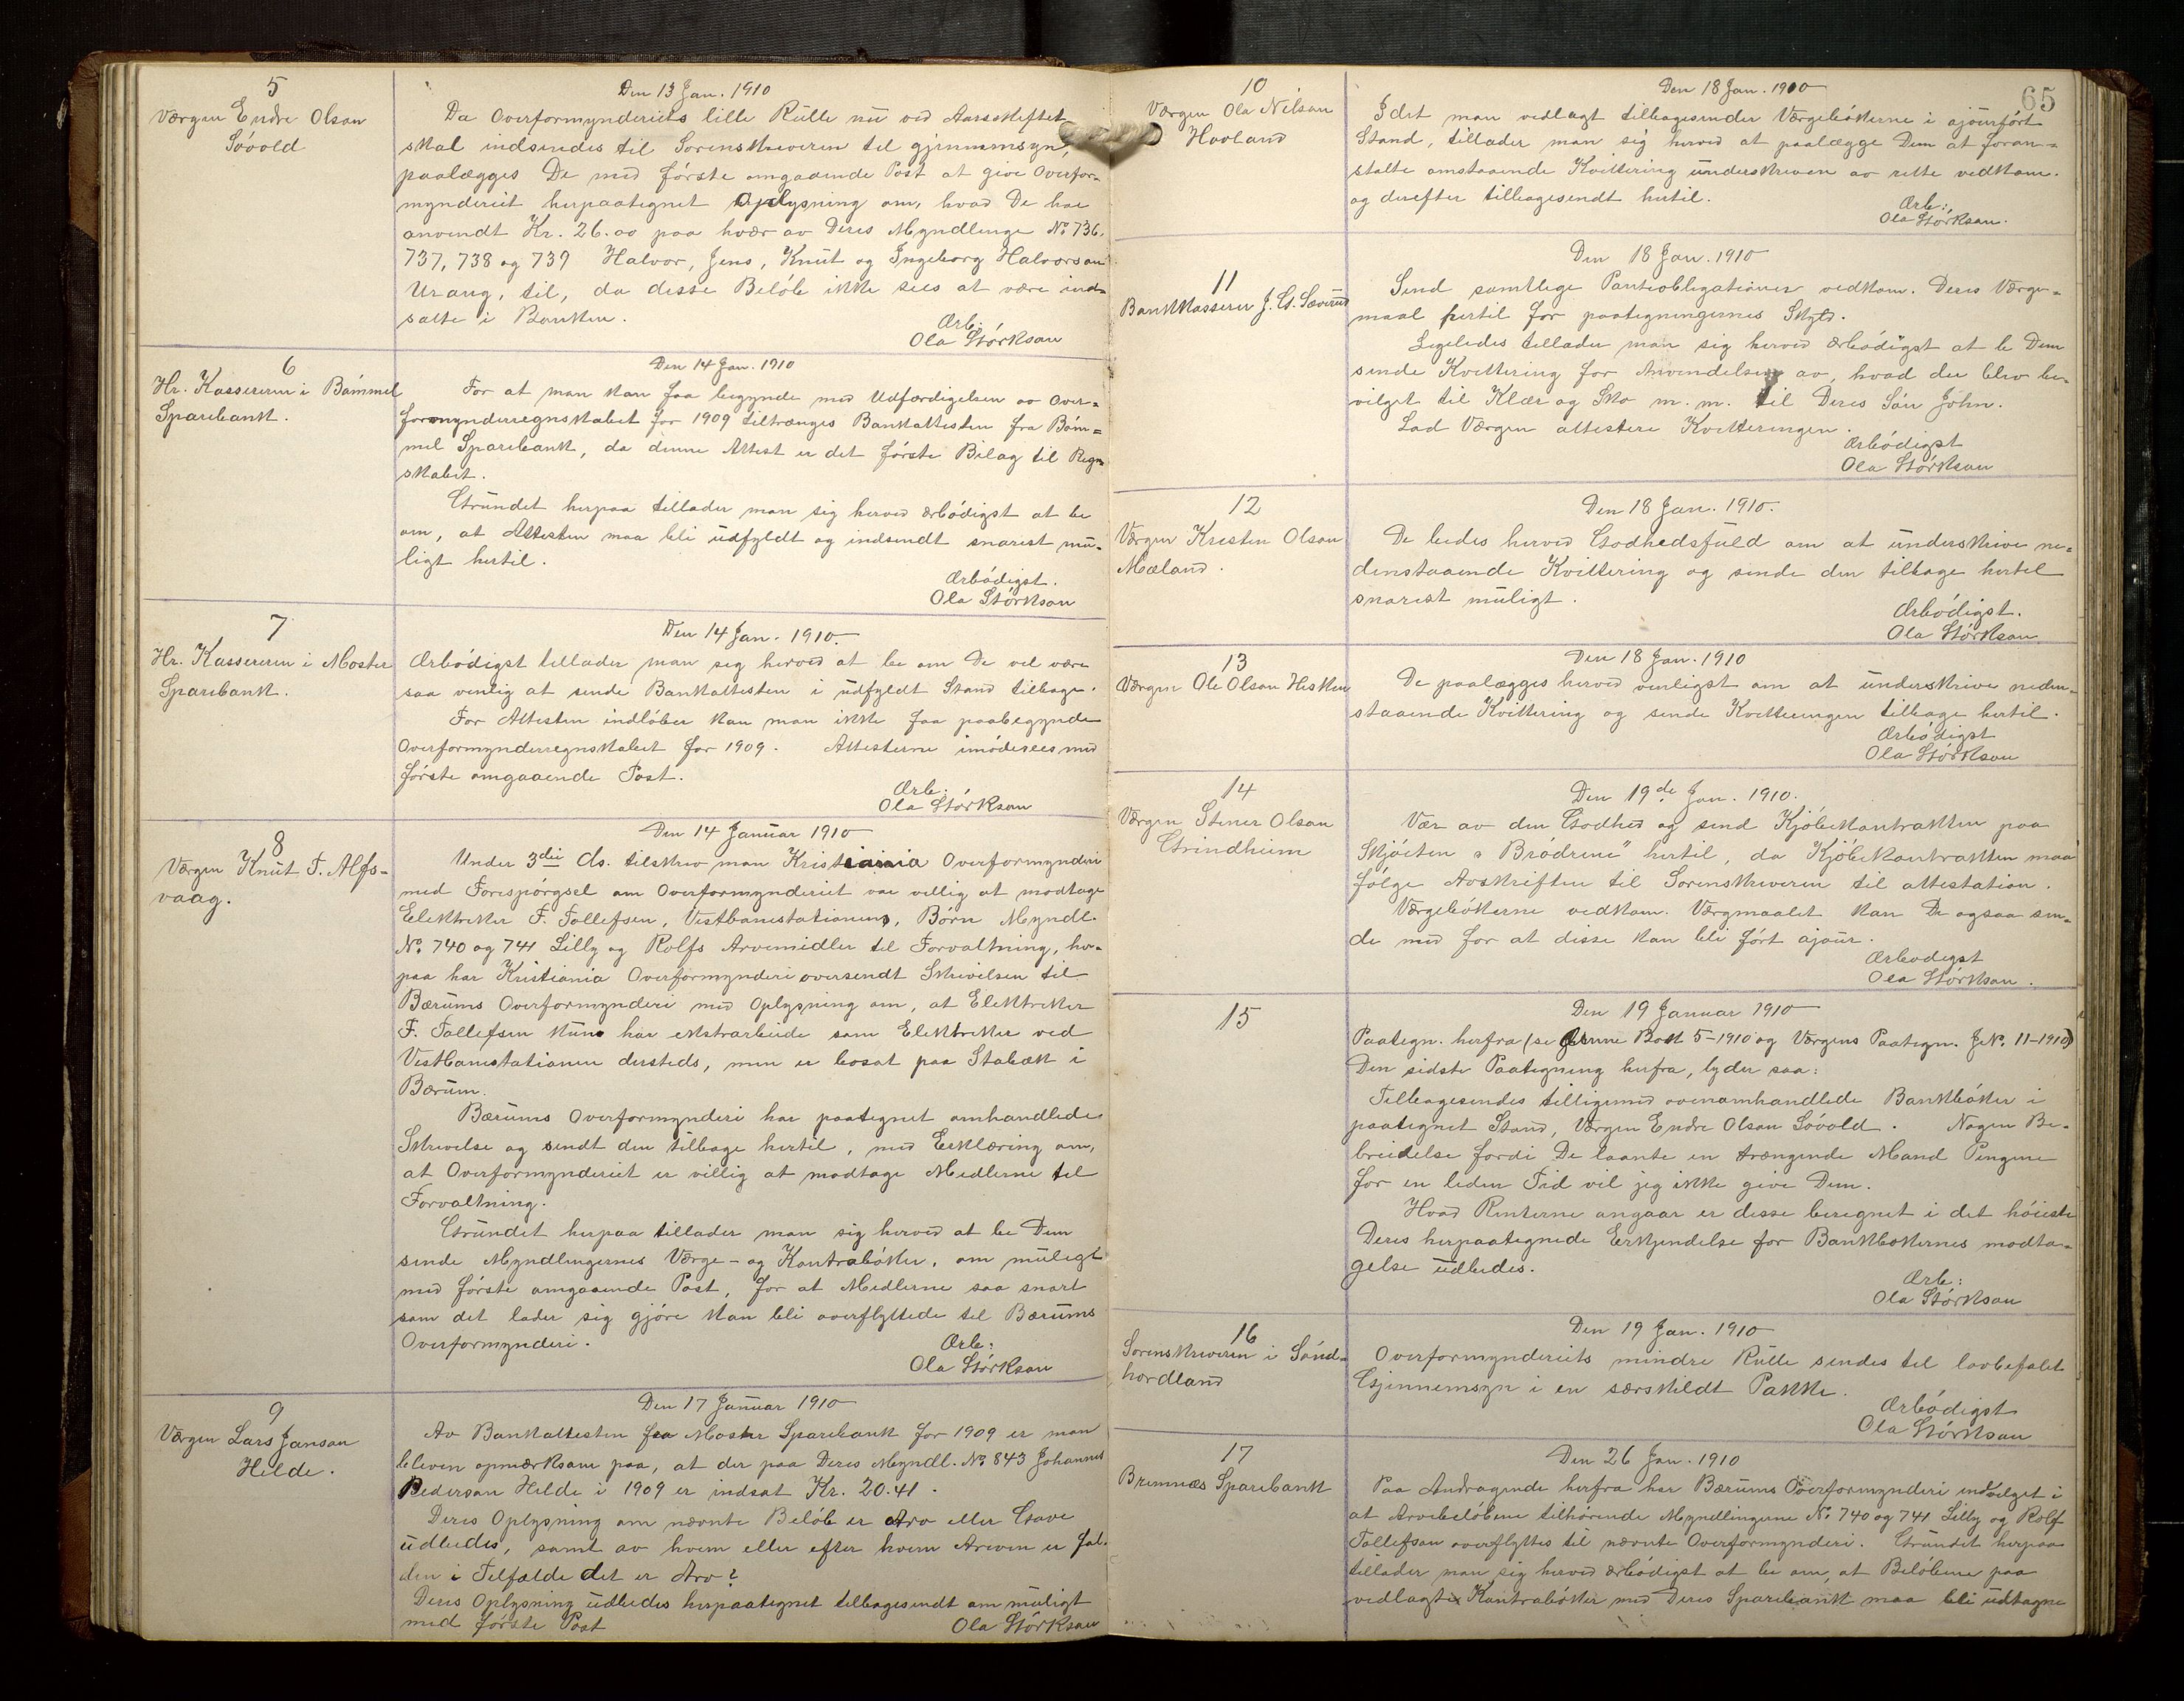 5
Værgen Endre Olson
Sövold
Den 13 Jan. 1910
Da Overformynderiets lille Rulle nu ved Aarsskiftet
skal indsendes til Sorenskriveren til gjennemsyn,
paalægges De med förste omgaaende Post at give Overfor-
mynderiet herpaategnet Oplysning om, hvad De har
anvendt Kr. 26.00 paa hvær av Deres Myndlinge No 736,
737, 738 og 739 Halvor, Jens, Knut og Ingeborg Halvorson
Urang, til, da disse Belöb ikke sees at være ind-
satte i Banken.
Ærb.
Ola Störkson
6
Hr. Kassereren i Bömmel
Sparebank.
Den 14 Jan. 1910
For at man kan faa begynde med Udfærdigelsen av Over-
formynderregnskabet for 1909 tiltrænges Bankattesten fra Böm=
mel Sparebank, da denne Attest er det förste Bilag til Regn-
skabet.
Grundet herpaa tillader man sig herved ærbödigst at be
om, at Attesten maa bli udfyldt og indsendt snarest mu-
ligt hertil.
Ærbödigst.
Ola Störkson
7
Hr. Kassereren i Moster
Sparebank.
Den 14 Jan. 1910.
Ærbödigst tillader man sig herved at be om De vil være
saa venlig at sende Bankattesten i udfyldt Stand tilbage.
Før Attesten indlöber kan man ikke faa paabegynde
Overformynderregnskabet for 1909. Attesterne imödesees med
förste omgaaende Post.
Ærb.
Ola Störkson
8
Værgen Knut T. Alfs-
vaag.
Den 14 Januar 1910
Under 3die ds. tilskrev man Kristiania Overformynderi
med Forespörgsel om Overformynderiet var villig at modtage
Elektriker F. Tollefsen, Vestbanestationens, Börn Myndl.
No 740 og 741 Lilly og Rolfs Arvemidler til Forvaltning, her-
paa har Kristiania Overformynderi oversendt Skrivelsen til
Bærums Overformynderi med Oplysning om, at Elektriker
F. Tollefsen kuns har ekstraarbeide som Elektriker ved
Vestbanestationen dersteds, men er bosat paa Stabæk i
Bærum.
Bærums Overformynderi har paategnet omhandlede
Skrivelse og sendt den tilbage hertil, med Erklæring om,
at Overformynderiet er villig at modtage Midlerne til
Forvaltning.
Grundet herpaa tillader man sig herved at be Dem
sende Myndlingernes Værge- og Kontrabökker, om muligt
med förste omgaaende Post, for at Midlerne saa snart
som det lader sig gjöre kan bli overflyttede til Bærums
Overformynderi.
Ærb:
Ola Störkson
9
Værgen Lars Janson
Helde.
Den 17 Januar 1910
Av Bankattesten fra Moster Sparebank for 1909 er man
bleven opmærksom paa, at der paa Deres Myndl. No 843 Johannes
Pederson Helde i 1909 er indsat Kr. 20.41.
Deres Oplysning om nævnte Belöb er Arv eller Gave
udbedes, samt av hvem eller efter hvem Arven er fal-
den i Tilfælde det er Arv?
Deres Oplysning udbedes herpaategnet tilbagesendt om muligt
med förste Post
Ola Störkson
65
10
Værgen Ola Nilson
Havland
Den 18 Jan. 1910
Idet man vedlagt tilbagesender Værgebökerne i ajourfört
Stand, tillader man sig herved at paalægge Dem at foran-
stalte omstaaende Kvittering underskreven av rette vedkom.
og derefter tilbagesendt hertil.
Ærb:
Ola Störkson.
11
Bankkasserer J. G. Sæverud
Den 18 Jan. 1910
Send samtlige Panteobligationer vedkom. Deres Værge-
maal hertil for paategningernes Skyld.
Ligeledes tillader man sig herved ærbödigst at be Dem
sende Kvittering for Anvendelsen av, hvad der blev be-
vilget til Klær og Sko m. m. til Deres Sön John.
Lad Værgen attestere Kvitteringen.
Ærbödigst
Ola Störkson
12
Værgen Kristen Olson
Mæland.
Den 18 Jan. 1910.
De bedes herved Godhedsfuld om at underskrive ne-
denstaaende Kvittering og sende den tilbage hertil
snarest muligt.
Ærbödigst.
Ola Störkson
13
Værgen Ole Olson Hisken
Den 18 Jan. 1910
De paalægges herved venligst om at underskrive neden-
staaende Kvittering og sende Kvitteringen tilbage hertil.
Ærbödigst
Ola Störkson
14
Værgen Stener Olson
Grindheim
Den 19de Jan. 1910.
Vær av den Godhed og send Kjöbekontrakten paa
Skjöiten "Brödrene" hertil, da Kjöbekontrakten maa
fölge Avskriften til Sorenskriveren til attestation.
Værgebökerne vedkom. Værgmaalet kan De ogsaa sen-
de med for at disse kan bli fört ajour.
Ærbodigst
Ola Störkson.
15
Den 19 Januar 1910
Paategn. herfra (se denne Bok 5-1910 og Værgens Paategn. J.No. 11-1910)
Den sidste Paategning herfra, lyder saa:
Tilbagesendes tilligemed ovenomhandlede Bankböker i
paategnet Stand, Værgen Endre Olson Sövold. Nogen Be-
breidelse fordi De laante en trængende Mand Pengene
for en liden Tid vil jeg ikke give Dem.
Hvad Renterne angaar er disse beregnet i det höieste
Deres herpaategnede Erkjendelse for Bankbökernes modta-
gelse udbedes.
Ærb:
Ola Störkson
16
Sorenskriveren i Sönd-
hordland
Den 19 Jan. 1910
Overformynderiets mindre Rulle sendes til lovbefalet
Gjennemsyn i en særskildt Pakke.
Ærbödigst
Ola Störkson
17
Bremnæs Sparebank
Den 26 Jan. 1910
Paa Andragende herfra har Bærums Overformynderi indvilget i
at Arvebelöbene tilhörende Myndlingerne No 740 og 741 Lilly og Rolf
Tollefson overflyttes til nævnte Overformynderi. Grundet herpaa
tillader man sig herved ærbödigst at be om, at Belöbene paa
vedlagte Kontraböker med Deres Sparebank maa bli udtagne